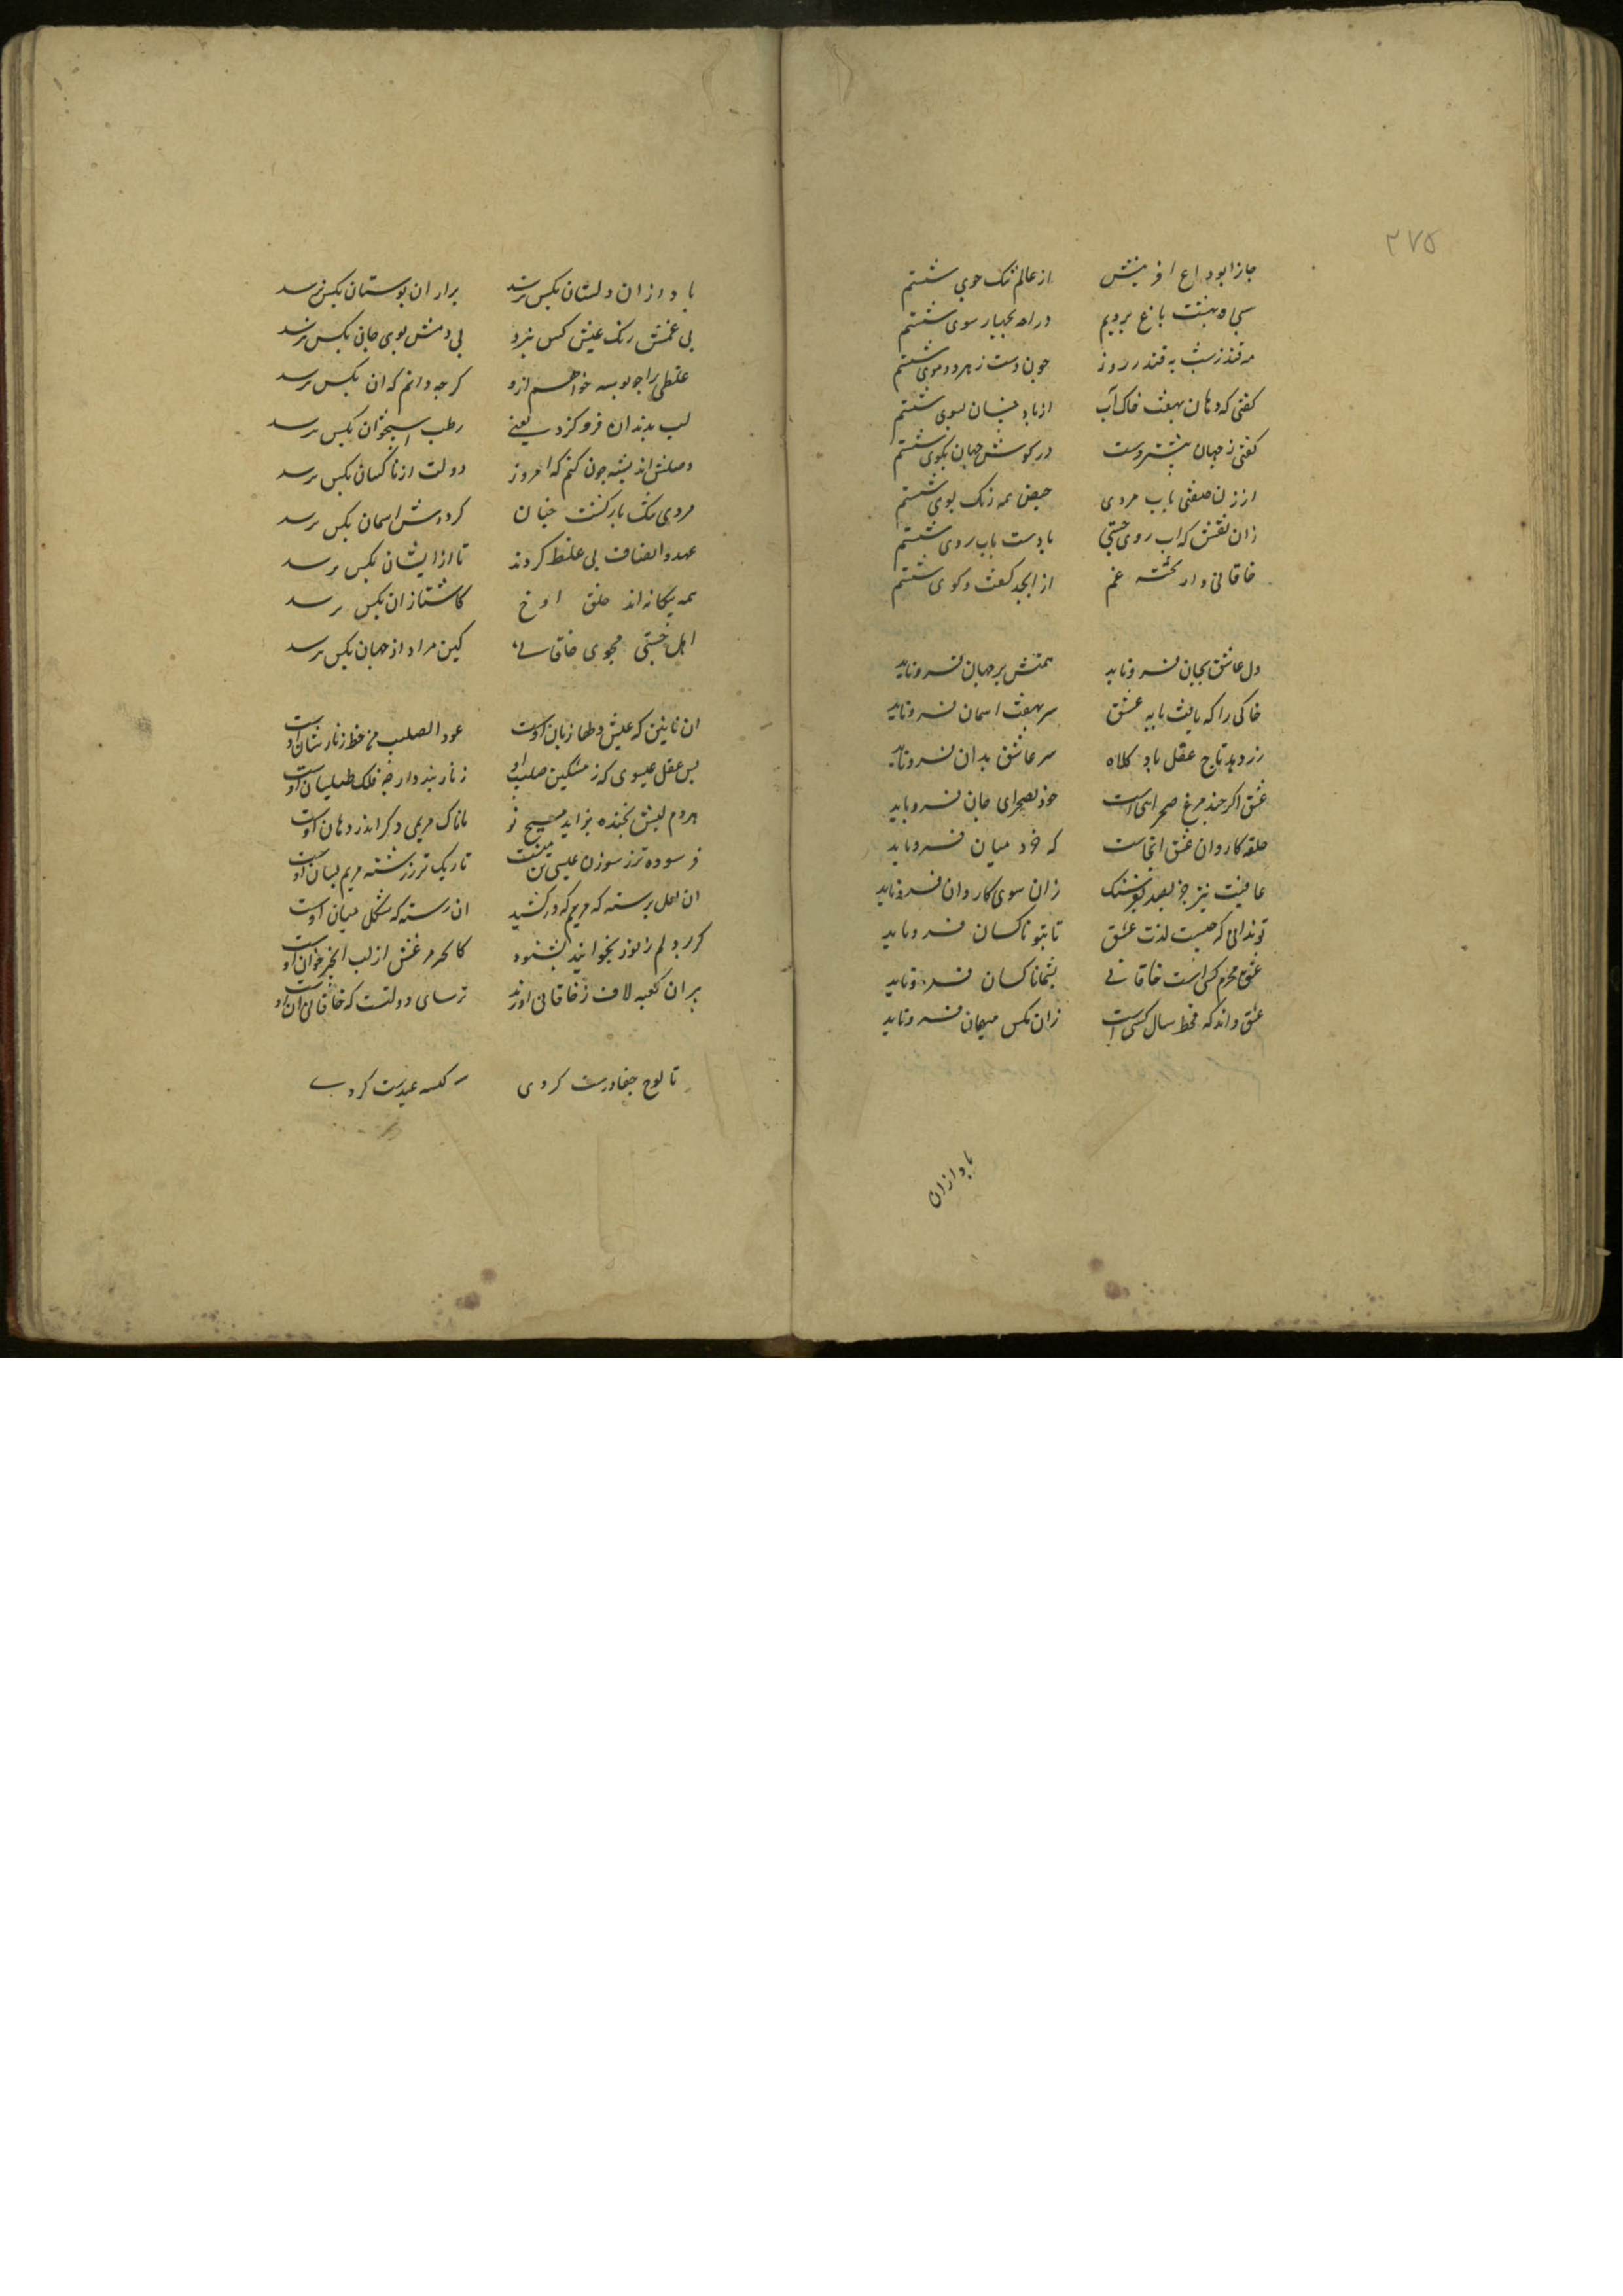 ۲۷۵
جانرا بوداع آفرینش از عالم تنگ خوی شستم
سی و هشت باغ بردیم در راه بچهار سوی شستم
چون دست زهر دو موی شستم
گفتی که دهان بهفت خاک آب از یاد خسان بشوی شستم
گفتی ز جهان در گوش جهان بگوی شستم
از زن صفتی بآب مردی حیض همه رنگ بوی شستم
زان نقش که آب روی جستی با دست بآب روی شستم
خاقانی وار تخته غم از ابجد گفت و کوی شستم
دل عاشق بجان فرو ناید همتش بر جهان فرو ناید
خاکی را که یافت پایه عشق سر بهفت آسمان فرو ناید
زر دهد تاج عقل باد کلاه سر عاشق بدان فرو ناید
عشق اگر چند مرغ صحرائی است خود بصحرای جان فرو ناید
حلقه کاروان عشق آنجاست که خرد میان فرو ناید
عافیت نیز جز بصد فرسنگ زان سوی کاروان فرو ناید
تو ندانی که چیست لذت عشق تا بتو ناگهان فرو ناید
عشق محرم کسی است خاقانی بشما ناکسان فرو ناید
عشق داند که قحط سال کسی است زان بکس میهمان فرو ناید
باد ازان
باد ازان دلستان بکس نرسد بر ازان بوستان بکس نرسد
بی غمش رنگ عیش کس نبرد بی دمش بوی جان بکس نرسد
غلطی را چو بوسه خواهم ازو گرچه دانم که آن بکس نرسد
لب بدندان فرو گزد یعنی رطب استخوان بکس نرسد
وصلش اندیشه چون کنم که امروز دولت از ناکسان بکس نرسد
گردش آسمان بکس نرسد
عهد و انصاف بی غلط کردند تا از ایشان بکس نرسد
همه بیگانه اند خلق آوخ کاشنا زان بکس نرسد
اهل جستی مجوی خاقانی کین مراد از جهان بکس نرسد
آن نازنین که عیسی دلها زبان اوست عود الصلیب من خط زنار سان اوست
بس عقل عیسوی که ز مشکین صلیب او زنار بند دارچه فلک طیلسان اوست
هر دم لبش بخنده بزاید مسیح نو مانا که مریمی دگر اندر دهان اوست
فرسوده تر ز سوزن عیسی تن منست تاریک تر ز رشته مریم لبان اوست
آن لعل بر سته که مریم که در کشید آن رسته که مشکل میان اوست
گر درد دلم زبور بخوانند بشنود کاخر مرغش از لب انجیل خوان اوست
بر آن کعبه لاف ز خاقانی آورند ترسای دولتست که خاقانی آن اوست
تا لوح جفا درست کردی سر کیسه عهد سست کردی